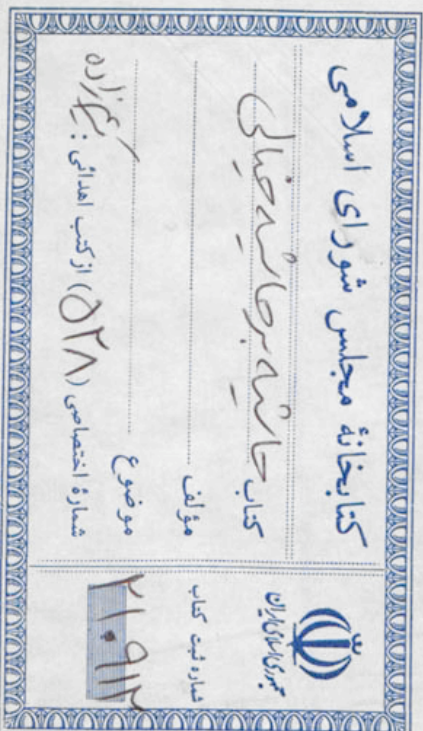 کتابخانهٔ مجلس شورای اسلامی
کتاب حاشیه بر حاشیه خیالی
مؤلف
موضوع
شمارهٔ اختصاصی (۵۲۸) از کتب اهدائی :
جمهوری اسلامی ایران
شماره ثبت کتاب
۲۱۰۹۱۲